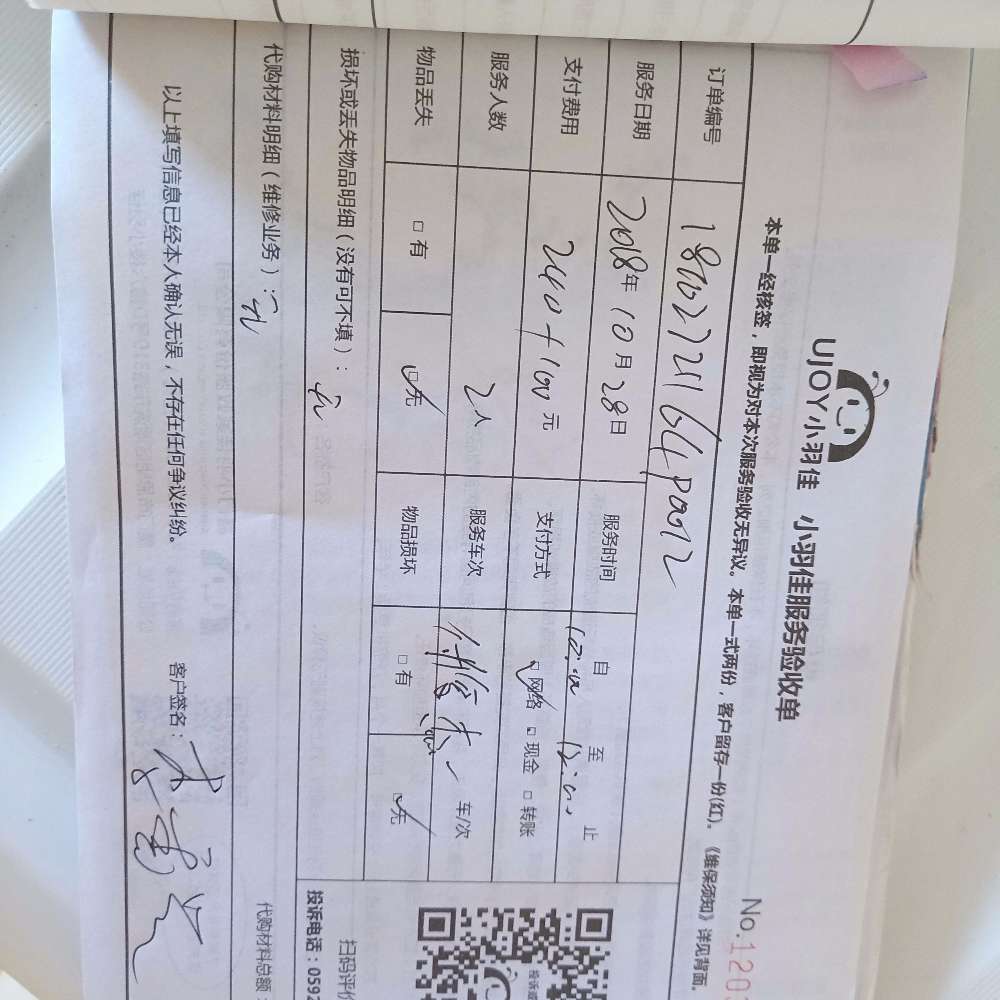 UJOY小羽佳 小羽佳服务验收单
本单一经核签，即视为对本次服务验收无异议。本单一式两份，客户留存一份(红)。《维保须知》详见背面。
No.120
订单编号
服务日期 2018年10月28日 服务时间 自 至 止
支付费用 240+100元 支付方式 网络 现金 转账
服务人数 2人 服务车次 车/次
物品丢失 有 无 物品损坏 有 无
损坏或丢失物品明细（没有可不填）：无
代购材料明细（维修业务）：无 代购材料总额：
扫码评价
投诉电话：0592
以上填写信息已经本人确认无误，不存在任何争议纠纷。 客户签名：